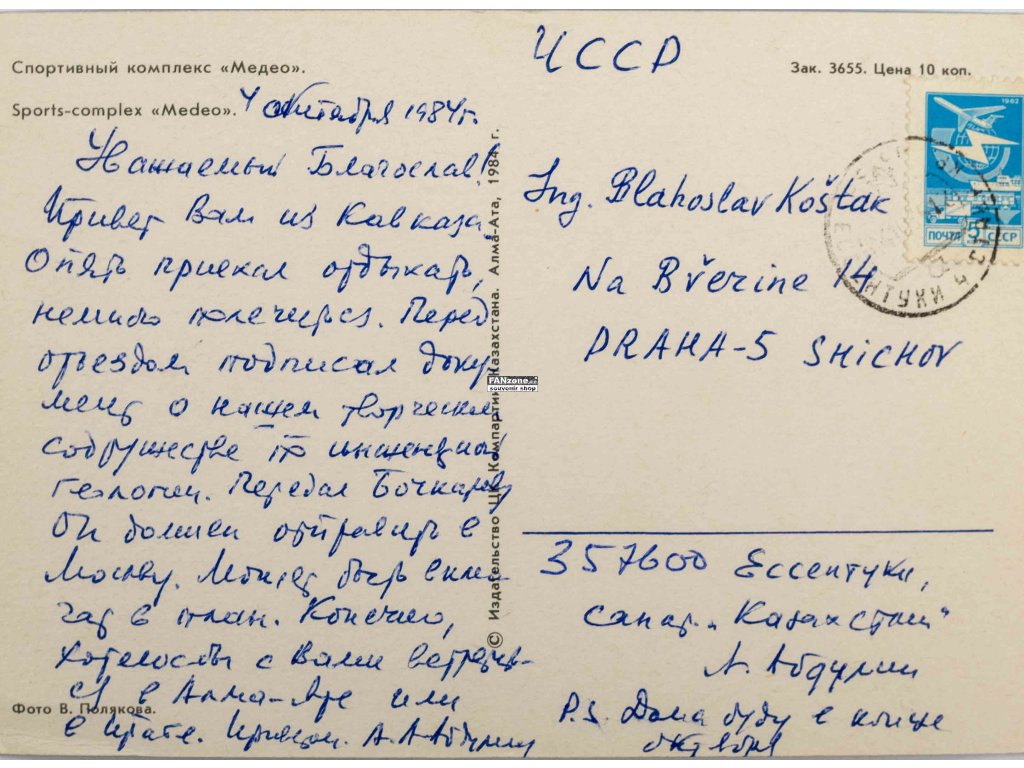 Спортивный комплекс «Медео».
Sports-complex «Medeo».
4 октября 1984 г.
Уважаемый Благослав!
Привет Вам из Кавказа!
Опять приехал отдыхать,
немного полечиться. Перед
отъездом подписал доку-
мент о нашем творческом
содружестве по инженерной
геологии. Передал Бочкареву
Он должен отправить в
Москву. Может быть вклю-
чат в план. Конечно,
хотелось бы с Вами встретить-
ся в Алма-Ате или
в Праге. А. Абдулин
Фото В. Полякова.
© Издательство ЦК Компартии Казахстана. Алма-Ата, 1984 г.
FANzone.cz
souvenir shop
ЧССР
Зак. 3655. Цена 10 коп.
1982
ПОЧТА 5 СССР
ЕССЕНТУКИ 4
Ing. Blahoslav Košťak
Na Břerine 14
PRAHA-5 SMICHOV
357600 Ессентуки,
санат. „Казахстан"
А. Абдулин
P.S. Дома буду в конце
октября